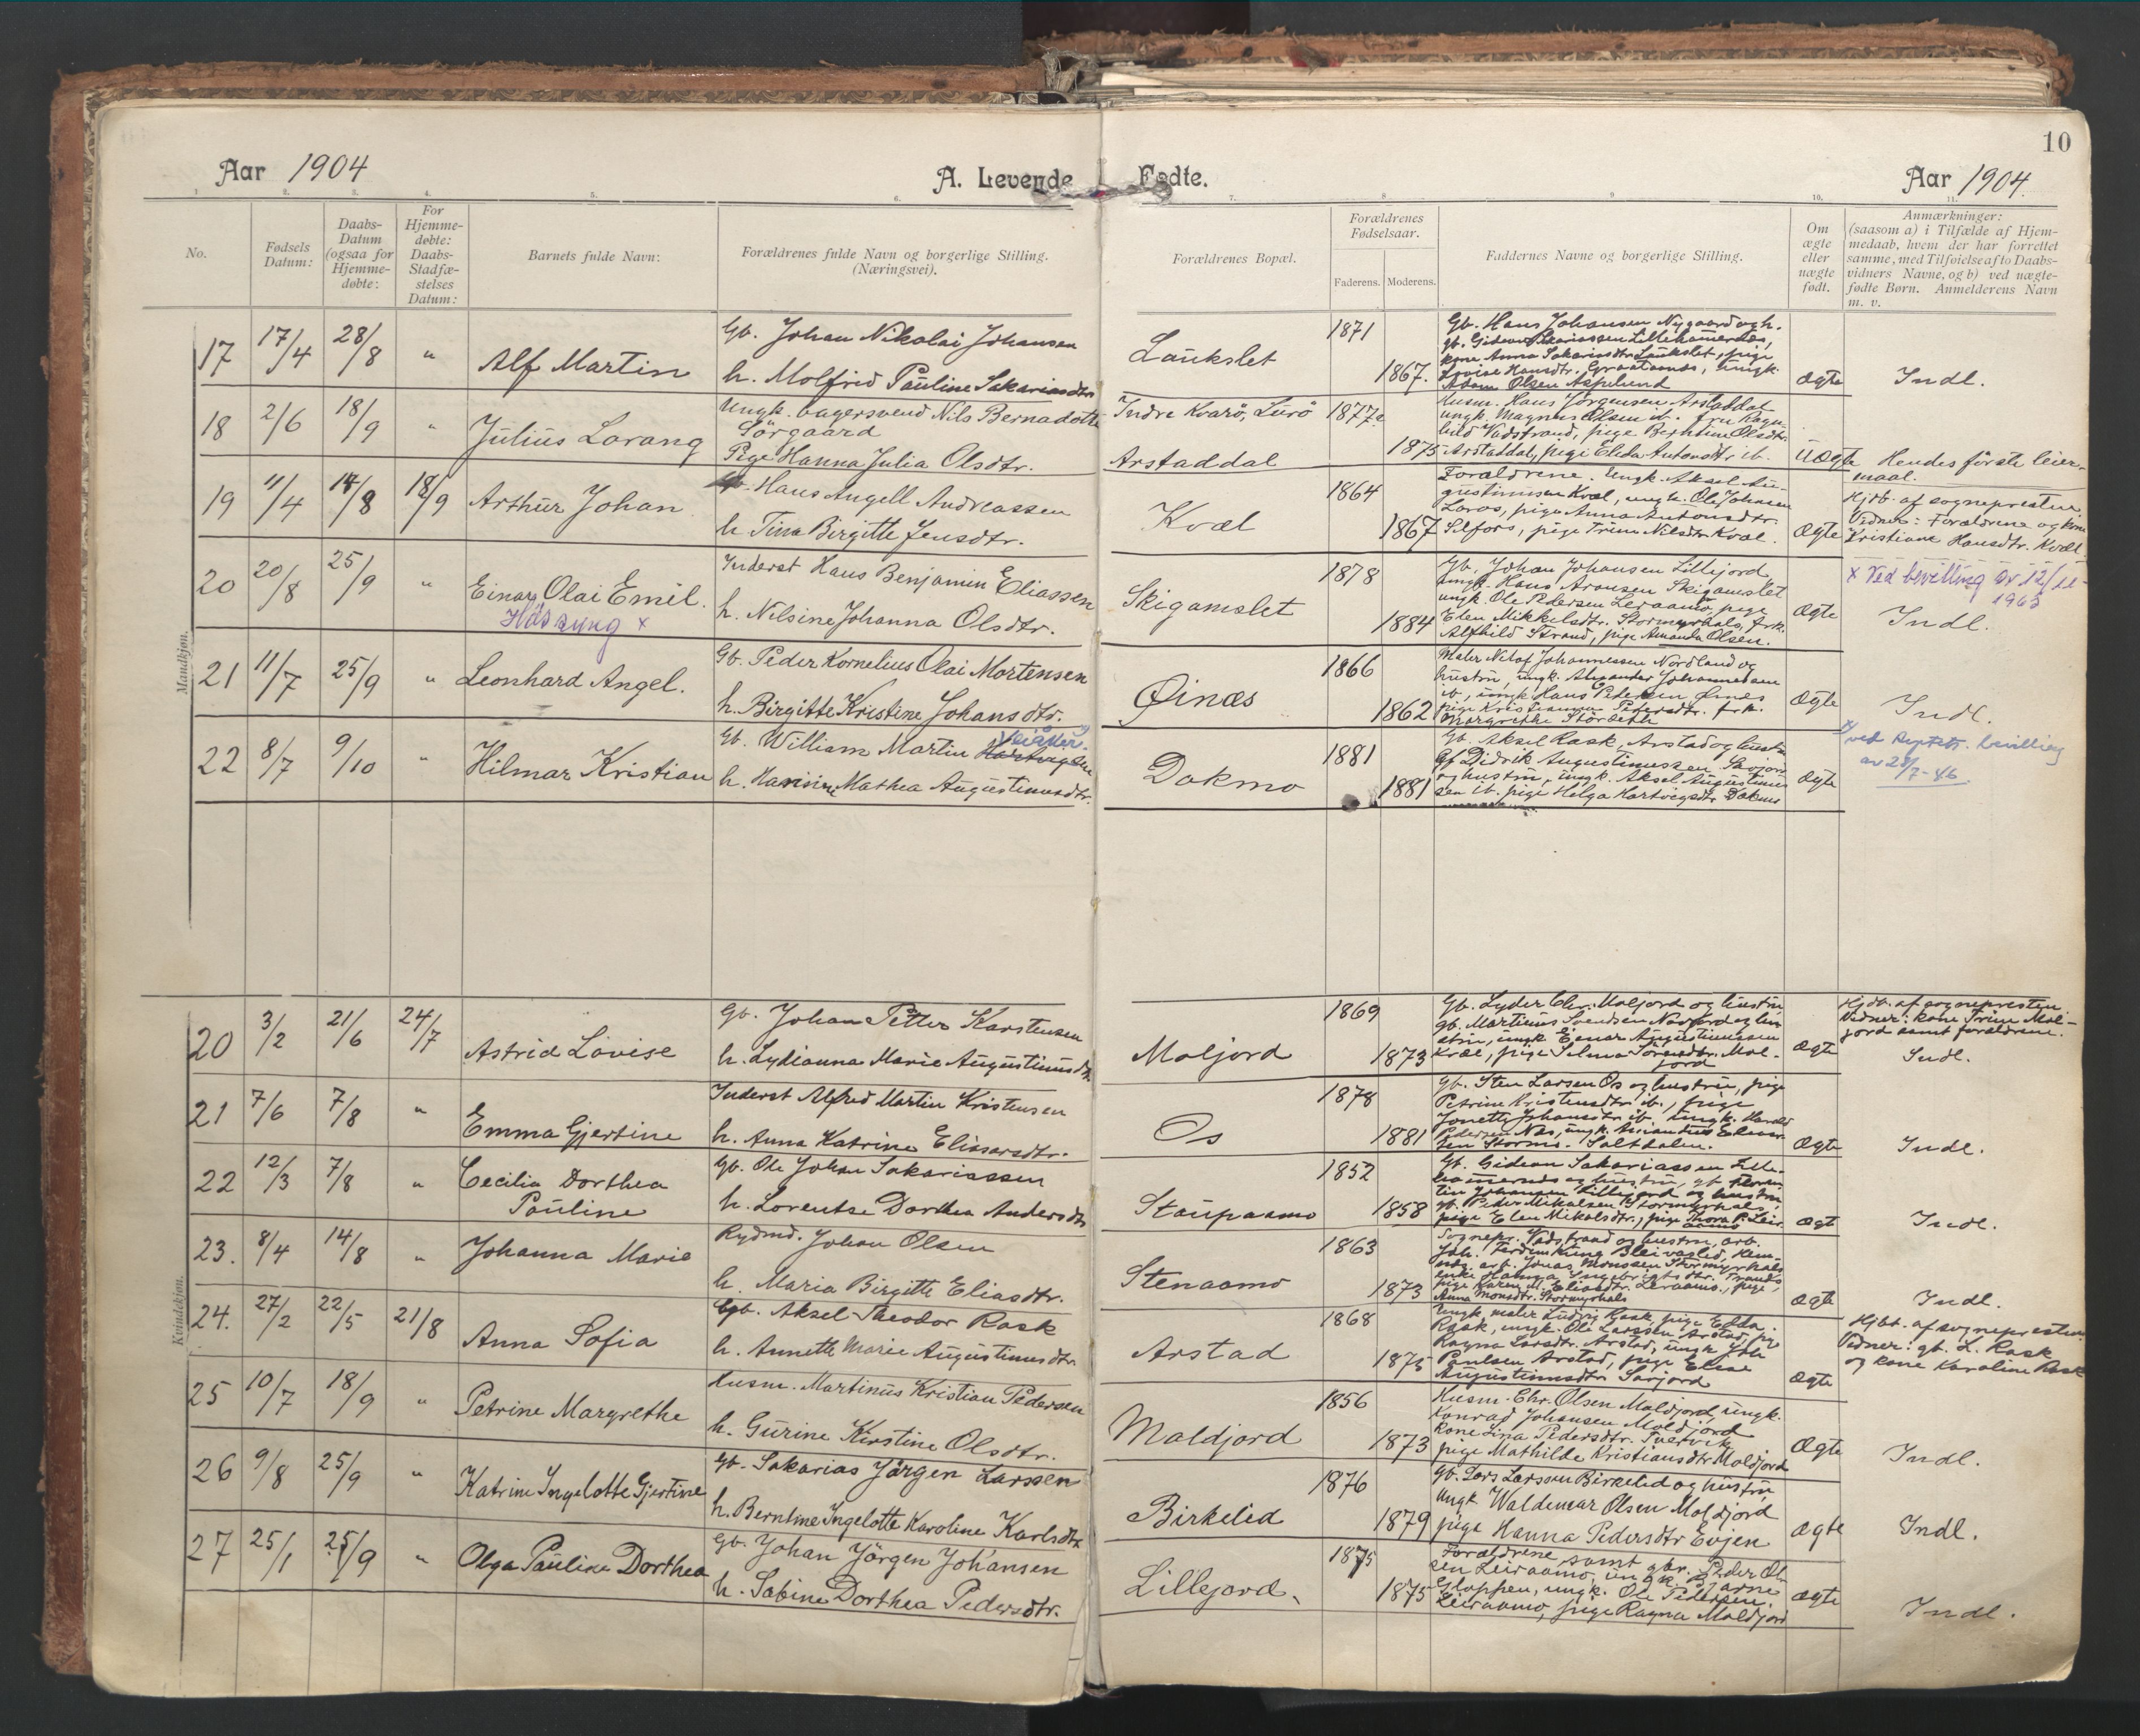 10
Aar 1904
A. Levende
Fødte.
Aar 1904.
1. 2. 3. 4. 5. 6. 7. 8 9 10. 11.
No.
Fødsels
Datum:
Daabs-
Datum
(ogsaa for
Hjemme-
døbte:
For
Hjemme-
døbte:
Daabs-
Stadfæ-
stelses
Datum:
Barnets fulde Navn:
Forældrenes fulde Navn og borgerlige Stilling.
(Næringsvei).
Forældrenes Bopæl.
Forældrenes
Fødselsaar.
Faderens. Moderens.
Faddernes Navne og borgerlige Stilling.
Om
ægte
eller
uægte
født.
Anmærkninger:
(saasom a) i Tilfælde af Hjem-
medaab, hvem der har forrettet
samme, med Tilføielse af to Daabs-
vidners Navne, og b) ved uægte-
fødte Børn. Anmelderens Navn
m. v.
Mandkjøn.
17 17/4 28/8 " Alf Martin
Gb. Johan Nikolai Johansen
h. Molfrid Pauline Sakariasdtr
Laukslet
1871
1867.
Gb. Hans Johansen Nygaard og h.
gb. Gideon Sakariassen Lillehammernes,
kone Anna Sakariasdtr Laukslet, pige
Lovise Hansdtr. Graatanes, ungk.
Adam Olsen Aspelund
ægte
Indl.
18 2/6 18/9 " Julius Lorang
Ungk. bagersvend Nils Bernadotte
Sörgaard
Pige Hanna Julia Olsdtr.
Indre Kvarö, Lurö
Arstaddal
1877
1875
Husm. Hans Jörgensen Arstaddal
ungk. Magnus Olsen ib. fru Ragn-
hild Vadstrand, pige Berntine Olsdtr.
Arstaddal, pige Elida Antonsdtr ib.
Uægte
Hendes förste leier-
maal.
19 11/4 14/8 18/9 Arthur Johan
Gb. Hans Angell Andreassen
h. Tina Birgitte Jensdtr.
Kvæl
1864
1867
Forældrene. Ungk. Aksel Au-
gustinussen Kvæl, ungk. Ole Johansen
Laros, pige Anna Antonsdtr.
Selfors, pige Trine Nilsdtr Kvæl.
ægte
Hjdb. af sognepresten.
Vidner: Forældrene og kone
Kristiane Hansdtr. Kvæl
20 20/8 25/9 " Einar Olai Emil.
Håssung x
Inderst Hans Benjamin Eliassen
h. Nilsine Johanna Olsdtr.
Skigamslet
1878
1884
Gb. Johan Johansen Lillejord
ungk. Hans Aronsen Skigamslet
ungk. Ole Pedersen Leiraamo, pige
Elen Mikkelsdtr. Stormyrhals, frk.
Alfhild Strand, pige Amanda Olsen.
ægte
x Ved bevilling av 12/11-
1963
Indl.
21 11/7 25/9 " Leonhard Angel.
Gb. Peder Kornelius Olai Mortensen
h. Birgitte Kristine Johansdtr.
Øinæs
1866
1862
Maler Johannessen Nordland og
hustru, ungk. Alexander Johannessen
ib, ungk. Hans Pedersen Øines
pige Kristianna Pedersdtr. frk.
Margrethe Störseth
ægte
Indl.
22 8/7 9/10 " Hilmar Kristian
Gb. William Martin Hartvigsen
h. Hansine Mathea Augustinusdtr.
Dokmo
1881
1881
Gb. Aksel Rask, Arstad og hustru
Gf Didrik Augustinussen Sarjord
og hustru, ungk. Aksel Augustinus-
sen ib. pige Helga Hartvigsdtr Dokmo
ægte
x) ved Deptets. bevilling
av 25/7-46.
Kvindekjøn.
20 3/2 21/6 24/7 Astrid Lovise
Gb. Johan Petter Karstensen
h. Lydianna Marie Augustinusdtr.
Moljord
1869
1873
Gb. Lyder Chr. Moljord og hustru
gb. Martinus Svendsen Norfjord og hu-
stru, ungk. Einar Augustinussen
Kvæl, pige Selma Sörensdtr. Mol-
jord
ægte
Hjdb. af sognepresten
Vidner: kone Trine Mol-
jord samt forældrene.
Indl.
21 7/6 7/8 " Emma Gjertine
Inderst Alfred Martin Kristensen
h. Anna Katrine Eliasdtr.
Os
1878
1881
Gb. Sten Larsen Os og hustru, pige
Petrine Kristensdtr ib., pige
Jonette Johansdtr ib. ungk. Harald
Pedersen Nes, ungk.
sen Stormo. Saltdalen.
ægte
Indl.
22 12/3 7/8 " Cecilia Dorthea
Pauline
Gb. Ole Johan Sakariassen
h. Lorentse Dorthea Andersdtr
Staupaamo
1852
1858
Gb. Gideon Sakariassen Lille-
hammernes og hustru, gb. Floren-
tin Johansen Lillejord og hustru
gb. Peder Mikalsen Stormyrhals,
pige Elen Mikalsdtr., pige Thora P. Leir-
aamo
ægt
Indl.
23. 8/4 14/8 " Johanna Marie
Rydmd. Johan Olsen
h. Maria Birgitte Eliasdtr.
Stenaamo
1863
1873
Sognepr. Vadstrand og hustru, arb.
Joh. Ferdin. Kung Bleivaslid, Hem-
nes, arb. Jonas Monssen Stormyrhals
enke Hanna Ingebrigtsdtr. Trands
pige Karen M. Eliasdtr. Leiraamo, pige
Anna Monsdtr. Stormyrhals
ægte
Indl.
24. 27/2 22/5 21/8 Anna Sofia
Gb. Aksel Theodor Rask
h. Annette Marie Augustinusdtr.
Arstad
1868
1875
Ungk. maler Ludvig Rask, pige Edda
Rask, ungk. Ole Larssen Arstad, pige
Ragna Larsdtr. Arstad, ungk Joh
Paulsen Arstad, pige Elise
Augustinusdtr Sarjord
ægte
Hjbt. af sognepresten
Vidner: gb. L. Rask
og kone Karoline Rask
25 10/7 18/9 " Petrine Margrethe
Husm. Martinus Kristian Pedersen
h. Gurine Kirstine Olsdtr.
Maldjord
1856
1873
Husm. Chr. Olsen Moldjord, ungk.
Konrad Johansen Moldjord
Kone Lina Pedersdtr. Tvervik
pige Mathilde Kristiansdtr Moldjord
ægte
Indl.
26 9/8 25/9 " Katrine Ingelotte Gjertine
Gb. Sakarias Jörgen Larssen
h. Berntine Ingelotte Karoline Karlsdtr
Birkelid
1876
1879
Gb. Lars Larssen Birkelid og hustru
Ungk Waldemar Olsen Moldjord
pige Hanna Pedersdtr Evjen
ægte
Indl.
27 25/1 25/9 " Olga Pauline Dorthea
Gb. Johan Jörgen Johansen
h. Sabine Dorthea Pedersdtr.
Lillejord.
1875
1875
Forældrene samt gbr. Peder Ol-
sen Leiraamo, ungk Bjarne
Gloppen, ungk. Ole Pedersen.
Leiraamo, pige Ragna Moldjord
ægte
Indl.